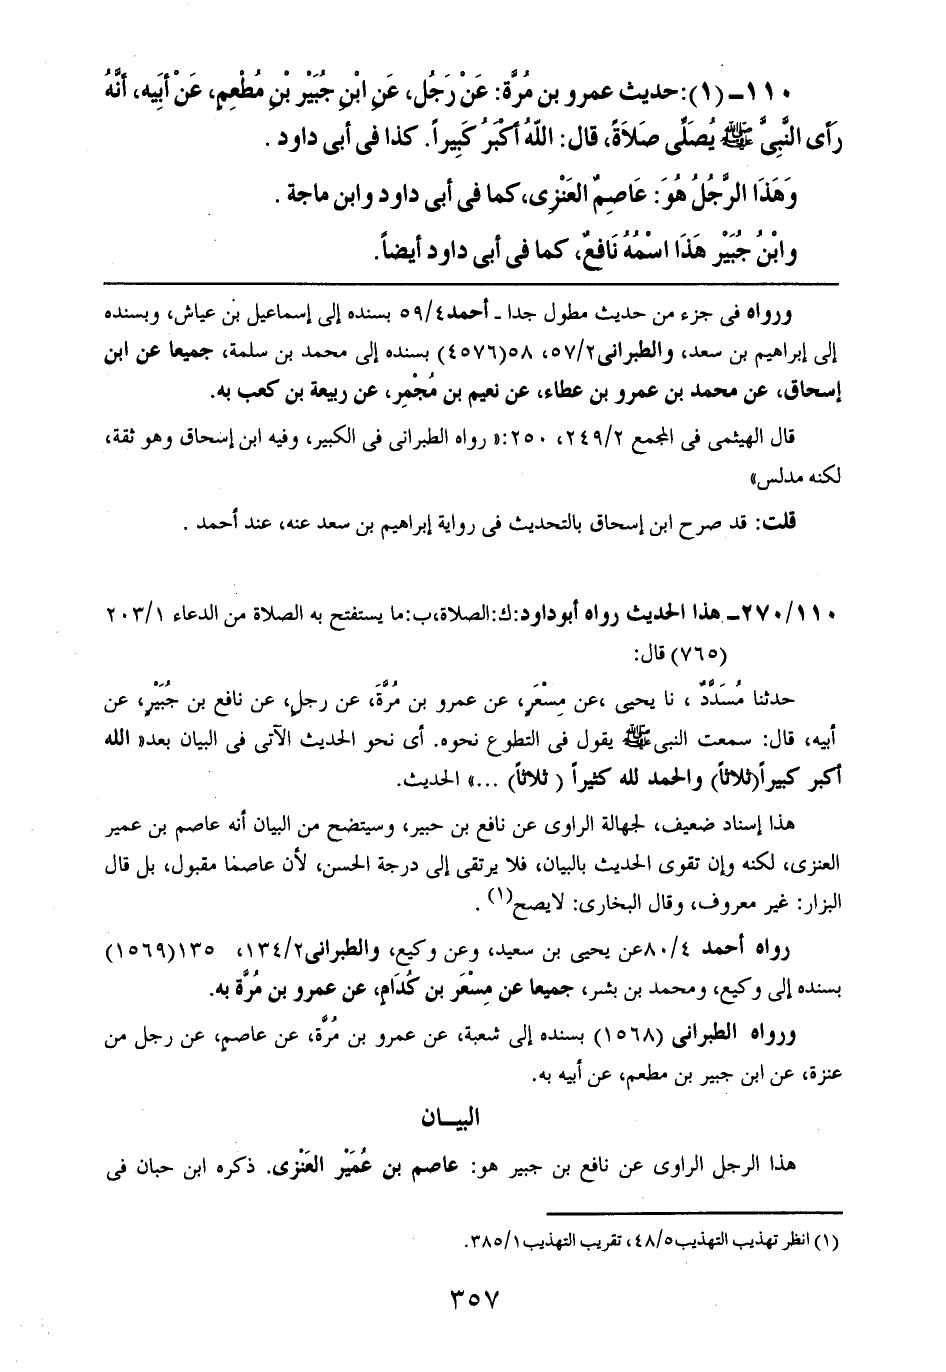 ١١٠ـ (١): حديث عمرو بن مُرَّة: عَنْ رَجُل، عَنِ ابْنِ جُبَيْرِ بْنِ مُطْعِم، عَنْ أبِيه، أنَّهُ
رَأى النَّبِىَّ ﷺ يُصَلَّى صَلاَةً، قال: اللّهُ أكْبَرُ كَبِيراً. كذا فى أبى داود .
وَهَذَا الرَّجُلُ هُوَ: عَاصِمٌ العَنْزِى، كما فى أبى داود وابن ماجة .
وابْنُ جُبَيْر هَذَا اسْمُهُ نَافِعٌ، كما فى أبى داود أيضاً.
ورواه فى جزء من حديث مطول جدا ـ أحمد٥٩/٤ بسنده إلى إسماعيل بن عياش، وبسنده
إلى إبراهيم بن سعد، والطبرانى٥٧/٢، ٥٨(٤٥٧٦) بسنده إلى محمد بن سلمة، جميعا عن ابن
إسحاق، عن محمد بن عمرو بن عطاء، عن نعيم بن مُجْمِر، عن ربيعة بن كعب به.
قال الهيثمى فى المجمع ٢٤٩/٢، ٢٥٠:« رواه الطبرانى فى الكبير، وفيه ابن إسحاق وهو ثقة،
لكنه مدلس»
قلت: قد صرح ابن إسحاق بالتحديث فى رواية إبراهيم بن سعد عنه، عند أحمد .
٢٧٠/١١٠ـ هذا الحديث رواه أبوداود:ك:الصلاة،ب:ما يستفتح به الصلاة من الدعاء ٢٠٣/١
(٧٦٥) قال:
حدثنا مُسَدَّدٌ ، نا يحيى ،عن مِسْعَرٍ، عن عمرو بن مُرَّةَ، عن رجلٍ، عن نافع بن جُبَيْرٍ، عن
أبيه، قال: سمعت النبى ﷺ يقول فى التطوع نحوه. أى نحو الحديث الآتى فى البيان بعد« الله
أكبر كبيراً(ثلاثاً) والحمد لله كثيراً ( ثلاثاً) ...» الحديث.
هذا إسناد ضعيف، لجهالة الراوى عن نافع بن حبير، وسيتضح من البيان أنه عاصم بن عمير
العنزى، لكنه وإن تقوى الحديث بالبيان، فلا يرتقى إلى درجة الحسن، لأن عاصما مقبول، بل قال
البزار: غير معروف، وقال البخارى: لايصح(١) .
رواه أحمد ٨٠/٤عن يحيى بن سعيد، وعن وكيع، والطبرانى١٣٤/٢، ١٣٥(١٥٦٩)
بسنده إلى وكيع، ومحمد بن بشر، جميعا عن مِسْعَر بن كُدَام، عن عمرو بن مُرَّة به.
ورواه الطبرانى (١٥٦٨) بسنده إلى شعبة، عن عمرو بن مُرَّة، عن عاصم، عن رجل من
عنزة، عن ابن جبير بن مطعم، عن أبيه به.
البيـــان
هذا الرجل الراوى عن نافع بن جبير هو: عاصم بن عُمَيْر العَنْزى. ذكره ابن حبان فى
(١) انظر تهذيب التهذيب٤٨/٥، تقريب التهذيب٣٨٥/١.
٣٥٧